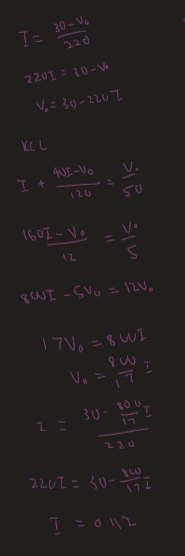 I = 30-V₀ / 220
220I = 30-V₀
V₀ = 30-220I
KCL
I + 40I-V₀ / 120 = V₀ / 50
160I-V₀ / 12 = V₀ / 5
800I - 5V₀ = 12V₀
17V₀ = 800I
V₀ = 800/17 I
I = 30 - 800/17 I / 220
220I = 30 - 800/17 I
I = 0.112